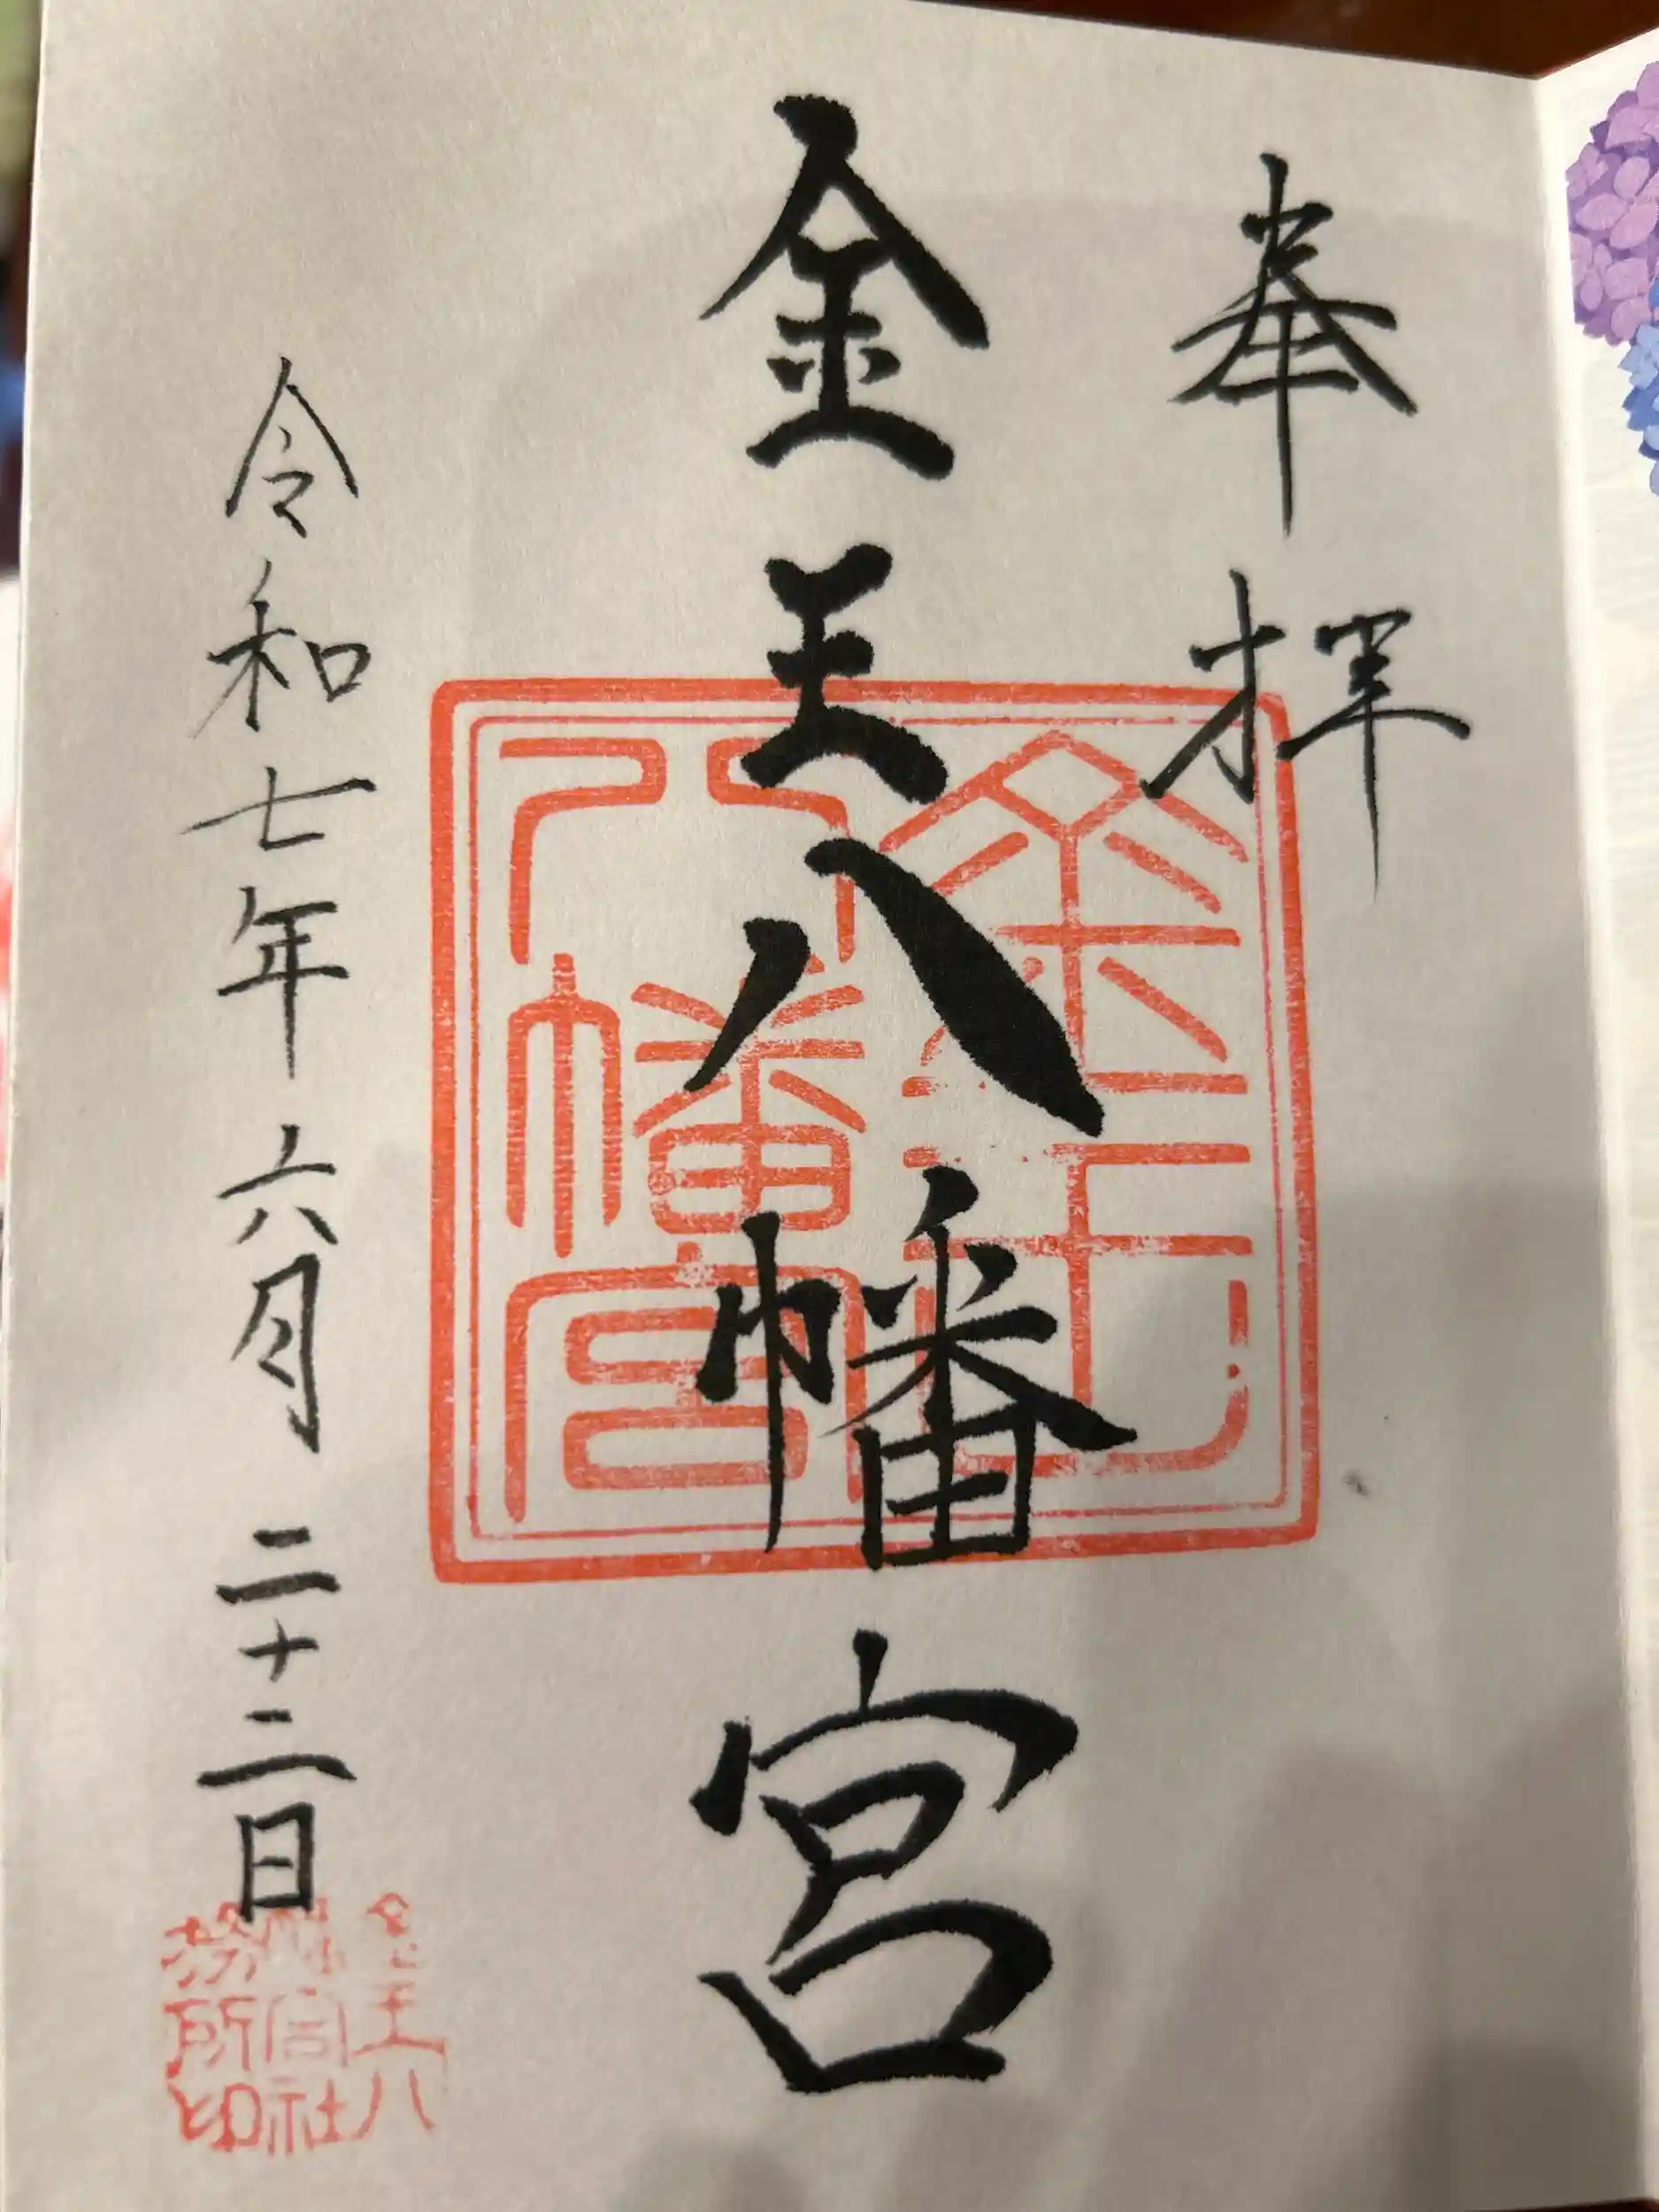 奉拝
金王八幡宮
令和七年六月二十二日
金王八幡宮
金王八
幡宮社
務所印